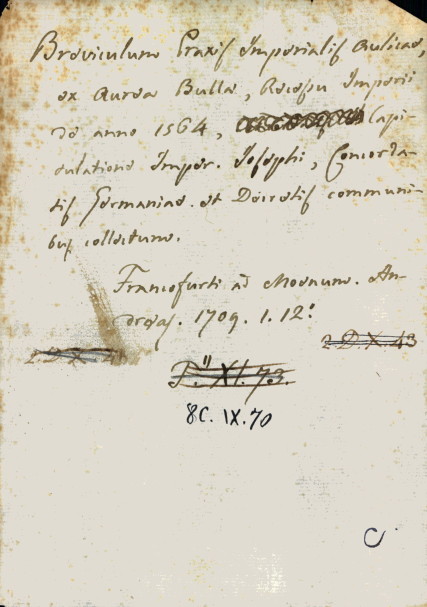 Breviculum Praxis Imperialis Aulicae,
ex Aurea Bulla, Recessu Imperii
de anno 1564, Capi-
tulatione Imper. Josephi, Concorda-
tis Germaniae et Decretis communi-
bus collectum.
Francofurti ad Moenum. An-
dreas. 1709. 1. 12°
2. D. X. 43
P." XI. 73.
8C. IX. 70
C